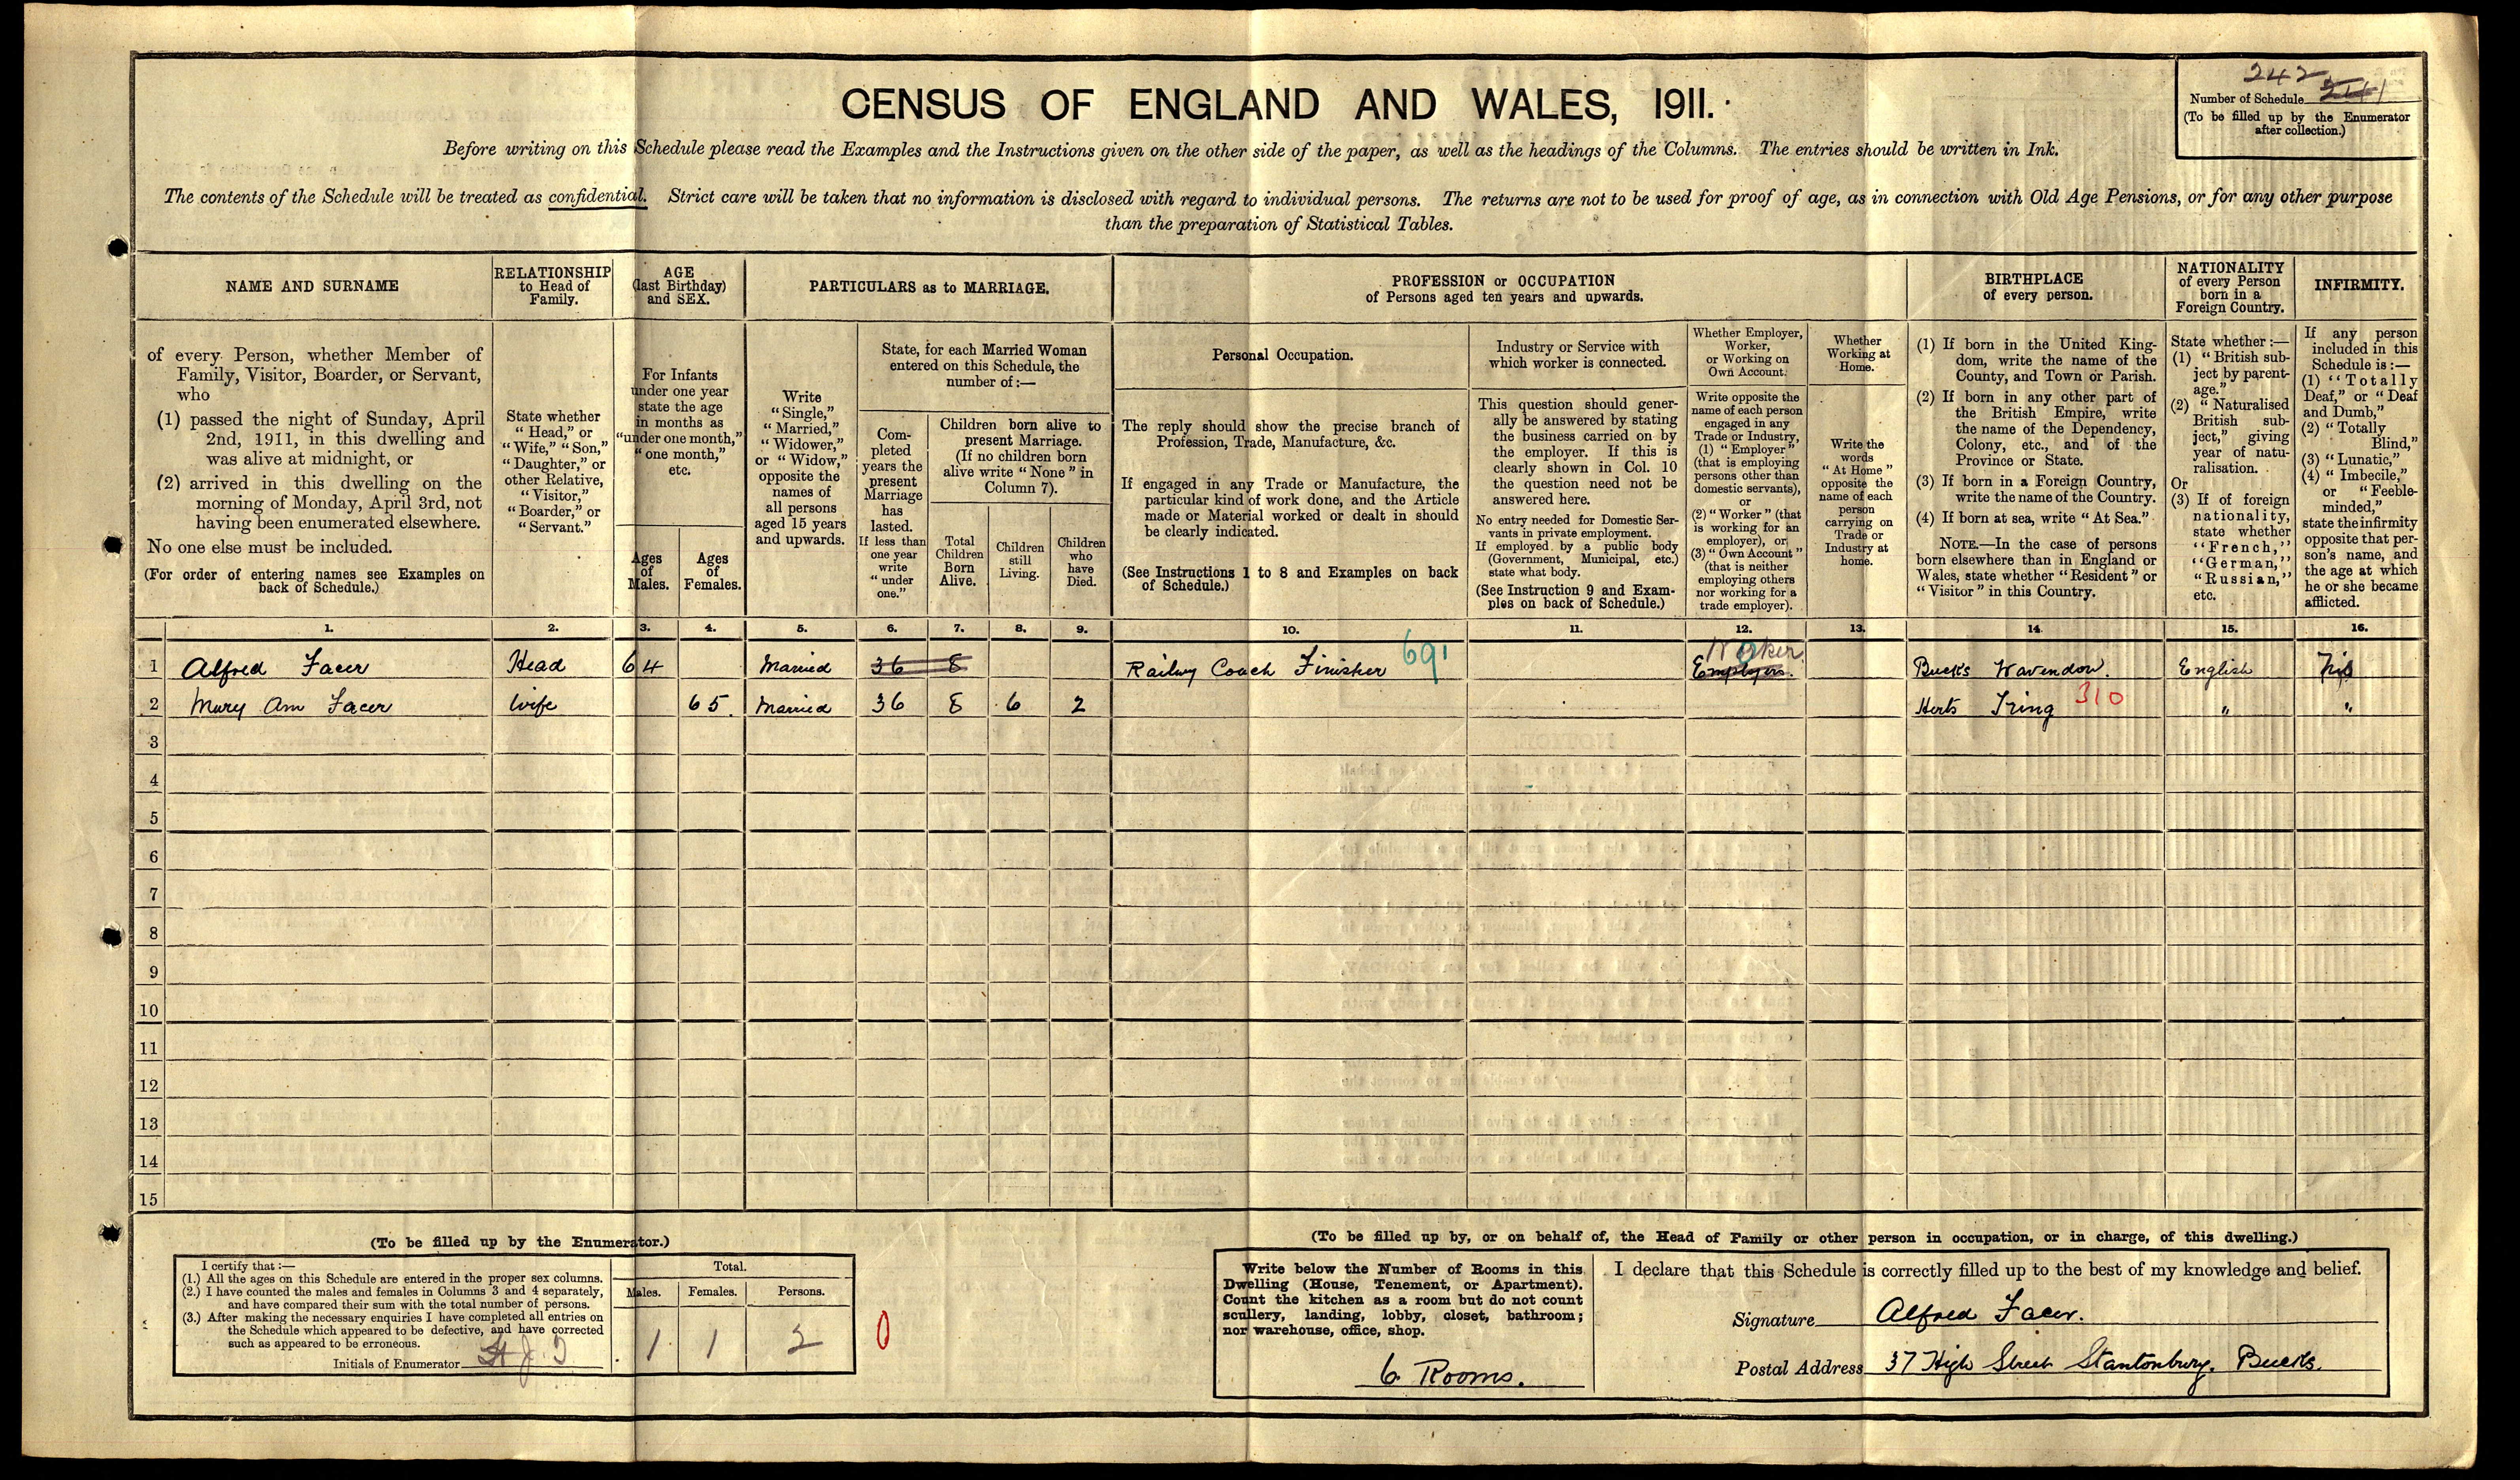 242
Number of Schedule 241
(To be filled up by the Enumerator
after collection.)
CENSUS OF ENGLAND AND WALES, 1911.
Before writing on this Schedule please read the Examples and the Instructions given on the other side of the paper, as well as the headings of the Columns. The entries should be written in Ink.
The contents of the Schedule will be treated as confidential. Strict care will be taken that no information is disclosed with regard to individual persons. The returns are not to be used for proof of age, as in connection with Old Age Pensions, or for any other purpose
than the preparation of Statistical Tables.
NAME AND SURNAME
of every Person, whether Member of
Family, Visitor, Boarder, or Servant,
who
(1) passed the night of Sunday, April
2nd, 1911, in this dwelling and
was alive at midnight, or
(2) arrived in this dwelling on the
morning of Monday, April 3rd, not
having been enumerated elsewhere.
No one else must be included.
(For order of entering names see Examples on
back of Schedule.)
RELATIONSHIP
to Head of
Family.
State whether
"Head," or
"Wife," "Son,"
"Daughter," or
other Relative,
"Visitor,"
"Boarder," or
"Servant."
AGE
(last Birthday)
and SEX.
For Infants
under one year
state the age
in months as
"under one month,"
"one month,"
etc.
Ages
of
Males.
Ages
of
Females.
PARTICULARS as to MARRIAGE.
Write
"Single,"
"Married,"
"Widower,"
or "Widow,"
opposite the
names of
all persons
aged 15 years
and upwards.
State, for each Married Woman
entered on this Schedule, the
number of:—
Com-
pleted
years the
present
Marriage
has
lasted.
If less than
one year
write
"under
one."
Children born alive to
present Marriage.
(If no children born
alive write "None" in
Column 7).
Total
Children
Born
Alive.
Children
still
Living.
Children
who
have
Died.
PROFESSION or OCCUPATION
of Persons aged ten years and upwards.
Personal Occupation.
The reply should show the precise branch of
Profession, Trade, Manufacture, &c.
If engaged in any Trade or Manufacture, the
particular kind of work done, and the Article
made or Material worked or dealt in should
be clearly indicated.
(See Instructions 1 to 8 and Examples on back
of Schedule.)
Industry or Service with
which worker is connected.
This question should gener-
ally be answered by stating
the business carried on by
the employer. If this is
clearly shown in Col. 10
the question need not be
answered here.
No entry needed for Domestic Ser-
vants in private employment.
If employed by a public body
(Government, Municipal, etc.)
state what body.
(See Instruction 9 and Exam-
ples on back of Schedule.)
Whether Employer,
Worker,
or Working on
Own Account.
Write opposite the
name of each person
engaged in any
Trade or Industry,
(1) "Employer"
(that is employing
persons other than
domestic servants),
or
(2) "Worker" (that
is working for an
employer), or
(3) "Own Account"
(that is neither
employing others
nor working for a
trade employer).
Whether
Working at
Home.
Write the
words
"At Home"
opposite the
name of each
person
carrying on
Trade or
Industry at
home.
BIRTHPLACE
of every person.
(1) If born in the United King-
dom, write the name of the
County, and Town or Parish.
(2) If born in any other part of
the British Empire, write
the name of the Dependency,
Colony, etc., and of the
Province or State.
(3) If born in a Foreign Country,
write the name of the Country.
(4) If born at sea, write "At Sea."
NOTE.—In the case of persons
born elsewhere than in England or
Wales, state whether "Resident" or
"Visitor" in this Country.
NATIONALITY
of every Person
born in a
Foreign Country.
State whether:—
(1) "British sub-
ject by parent-
age."
(2) "Naturalised
British sub-
ject," giving
year of natu-
ralisation.
Or
(3) If of foreign
nationality,
state whether
"French,"
"German,"
"Russian,"
etc.
INFIRMITY.
If any person
included in this
Schedule is:—
(1) "Totally
Deaf," or "Deaf
and Dumb,"
(2) "Totally
Blind,"
(3) "Lunatic,"
(4) "Imbecile,"
or "Feeble-
minded,"
state the infirmity
opposite that per-
son's name, and
the age at which
he or she became
afflicted.
1. 2. 3. 4. 5. 6. 7. 8. 9. 10. 11. 12. 13. 14. 15. 16.
Worker
1 Alfred Facer Head 64 Married 36 8 Railwy Coach Finisher 691 Employer. Bucks Wavendon. English Nil
2 Mary Ann Facer Wife 65. Married 36 8 6 2 Herts Tring 310 " "
3
4
5
6
7
8
9
10
11
12
13
14
15
(To be filled up by the Enumerator.)
I certify that:—
(1.) All the ages on this Schedule are entered in the proper sex columns.
(2.) I have counted the males and females in Columns 3 and 4 separately,
and have compared their sum with the total number of persons.
(3.) After making the necessary enquiries I have completed all entries on
the Schedule which appeared to be defective, and have corrected
such as appeared to be erroneous.
Initials of Enumerator
Total.
Males. Females. Persons.
1 1 2
0
(To be filled up by, or on behalf of, the Head of Family or other person in occupation, or in charge, of this dwelling.)
Write below the Number of Rooms in this
Dwelling (House, Tenement, or Apartment).
Count the kitchen as a room but do not count
scullery, landing, lobby, closet, bathroom;
nor warehouse, office, shop.
6 Rooms.
I declare that this Schedule is correctly filled up to the best of my knowledge and belief.
Signature Alfred Facer.
Postal Address 37 High Street Stantonbury. Bucks.